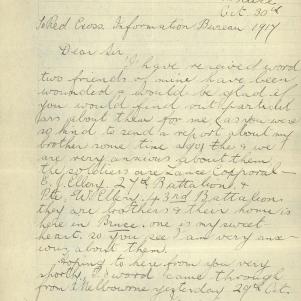 Oct. 30th
To Red Cross Information Bureau 1917
Dear Sir
I have received word
two friends of mine have been
wounded & would be glad if
you would find out particul
ars about them for me (as you were
so kind to send a report about my
brother some time ago) the & we
are very anxious about them
the soldiers are Lance Corporal
E. J. Ellery. 27th Battalion, &
Pte. W. Ellery. 43rd Battalion
they are brothers & their home is
here in Bruce. one is my sweet-
heart. so you see I am very anx-
ious about them.
Hoping to here from you very
shortly. word came through
from Melbourne yesterday 29th Oct.